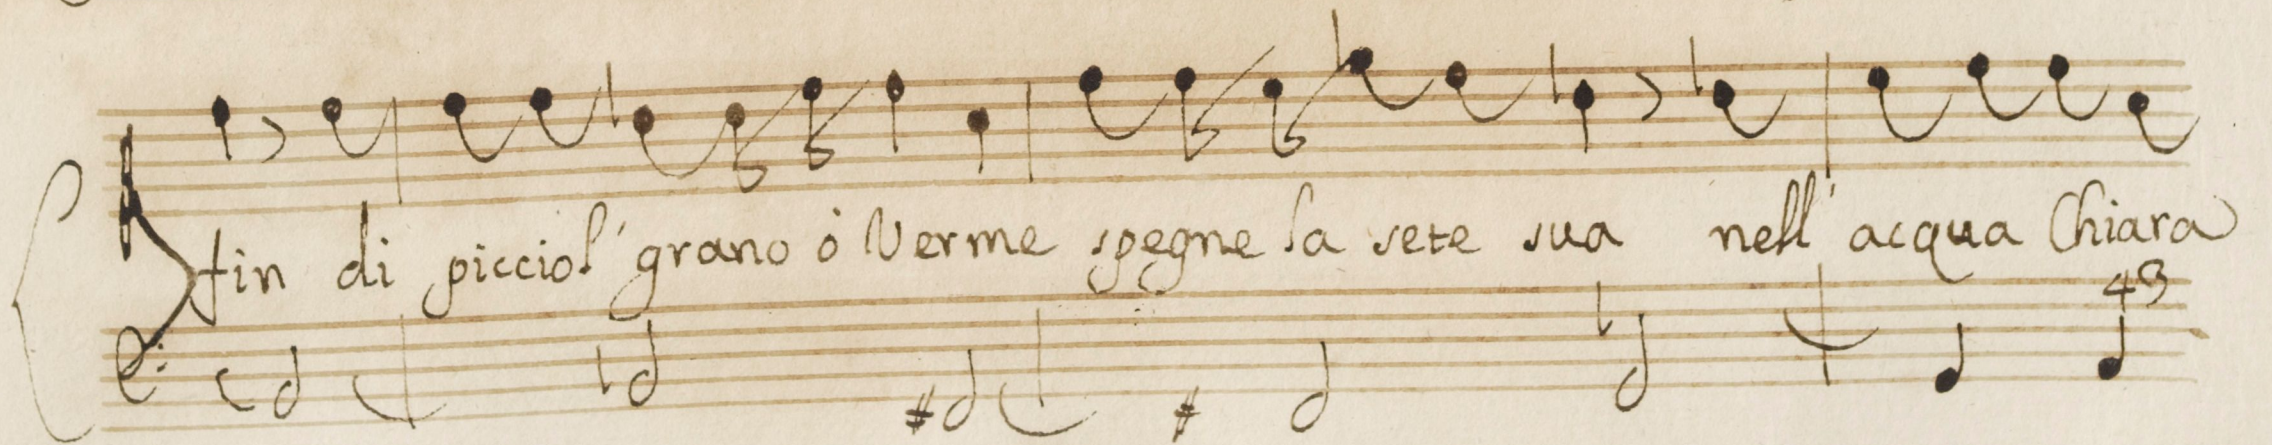 fin di picciol' grano ò Verme spegne la sete sua nell' acqua Chiara
43